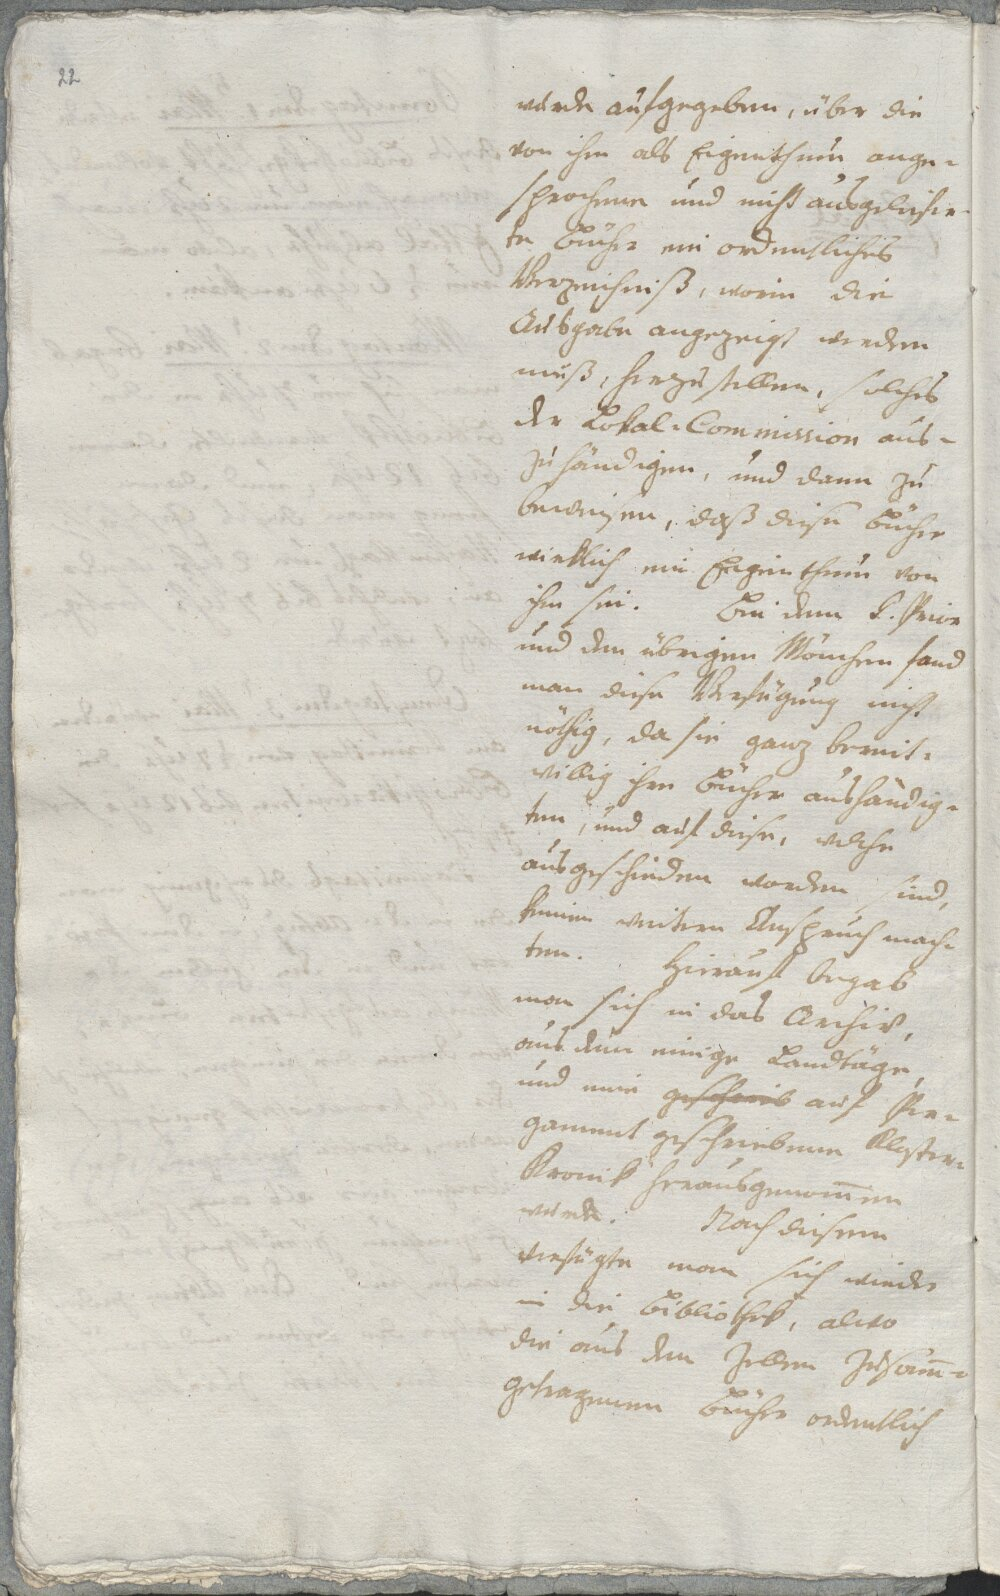 22
wurde aufgegeben, über die
von ihm als Eigenthum ange-
sprochene und nicht ausgeliefer-
te Bücher ein ordentliches
Verzeichniß, worin die
Ausgabe angezeigt werden
muß, herzustellen, solches
der Lokal-Commission aus-
zuhändigen, und dann zu
beweisen, daß diese Bücher
wirklich ein Eigenthum von
ihm sei. Bei dem P. Prior
und den übrigen Mönchen fand
man diese Verfügung nicht
nöthig, da sie ganz bereit-
willig ihre Bücher aushändig-
ten, und auf diese, welche
ausgeschieden worden sind,
keinen weitern Anspruch mach-
ten. Hierauf begab
man sich in das Archiv,
aus dem einige Landtäge,
und eine geschrieb auf Per-
gament geschriebene Kloster-
Kronik herausgenommen
wurde. Nach diesem
verfügte man sich wieder
in die Bibliothek, alwo
die aus den Zellen zusamm-
getragenen Bücher ordentlich